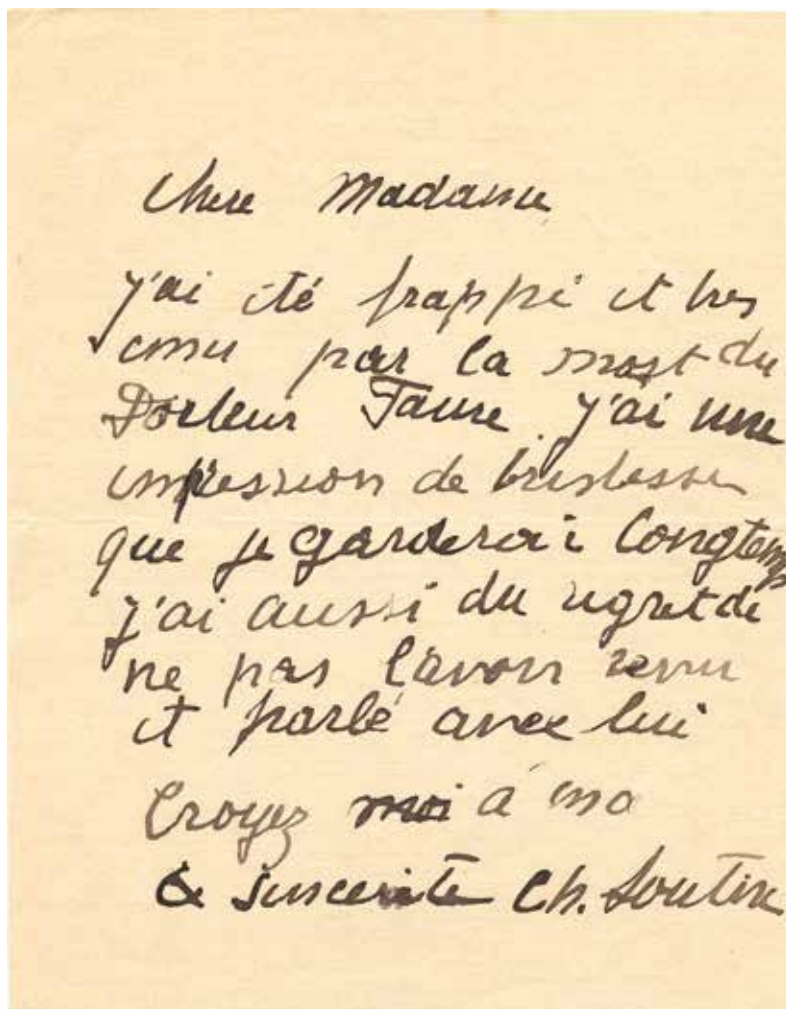 Chere Madame
J'ai été frappé et tres
emu par la mort du
Docteur Faure J'ai une
impression de tristesse
que je garderai longtemps
J'ai aussi du regret de
ne pas l'avoir revu
et parlé avec lui
Croyez moi à ma
sincerite Ch. Soutine